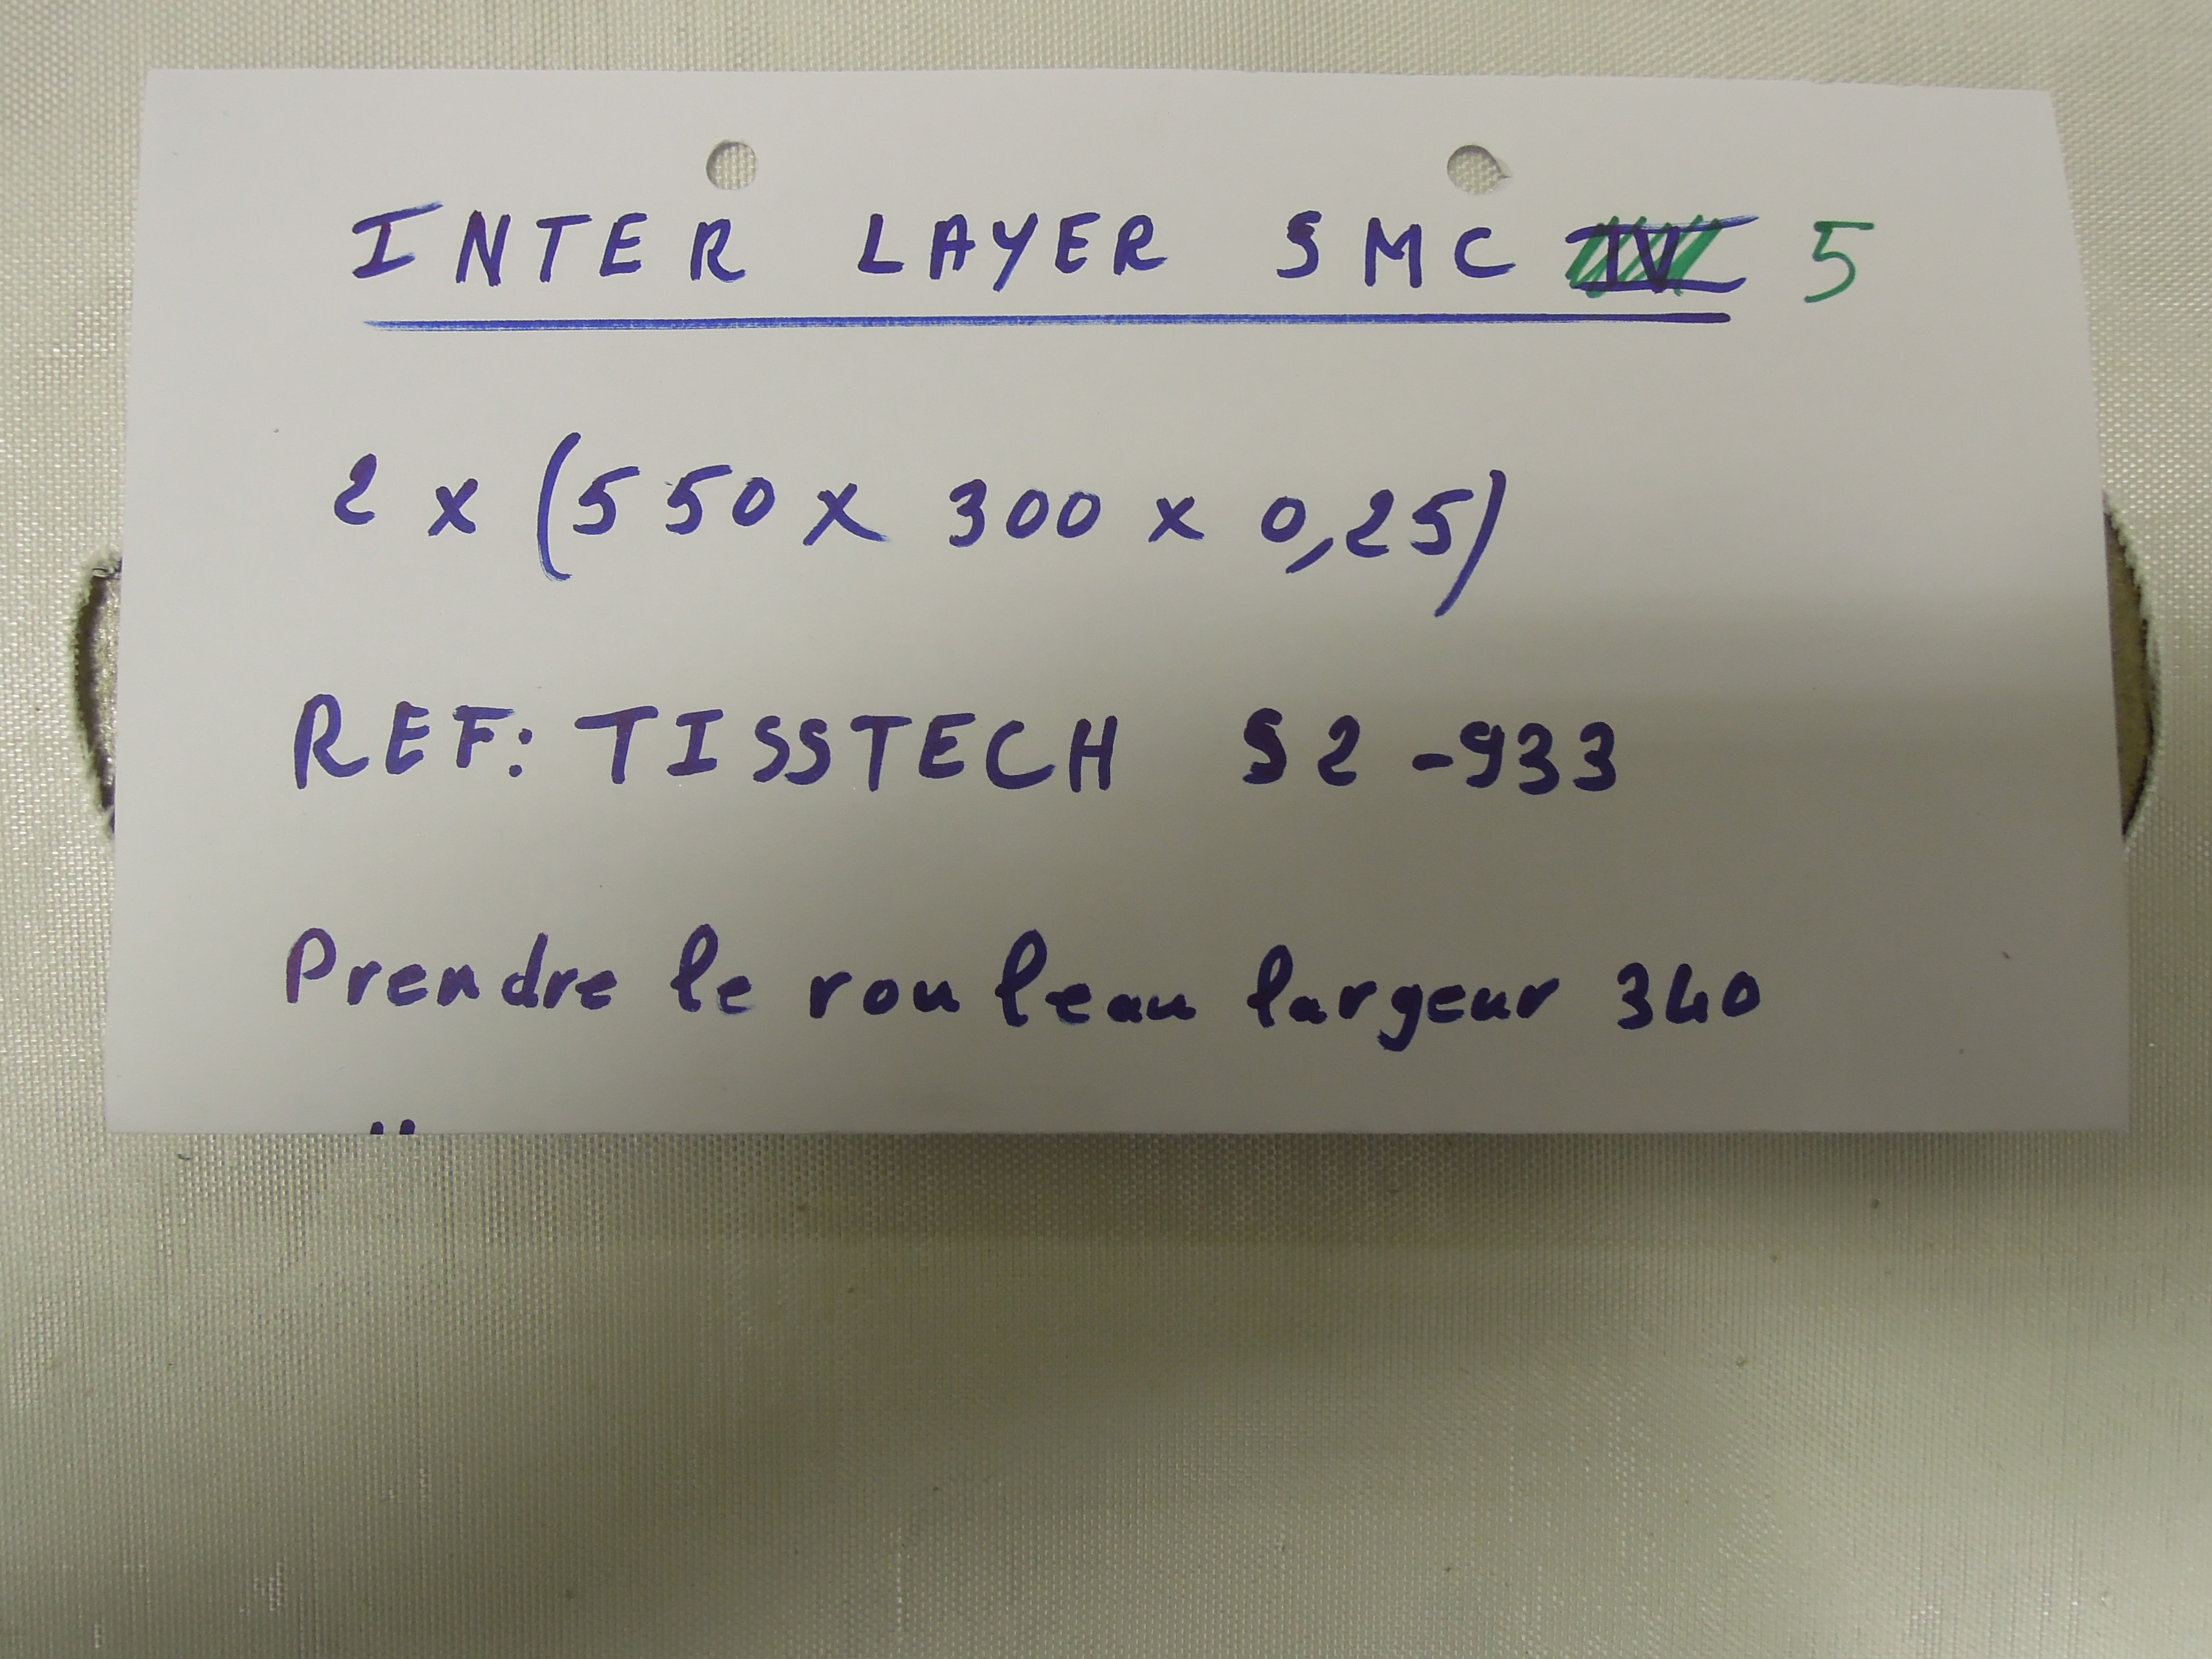 INTER LAYER SMC IV 5
2 x (550 x 300 x 0,25)
REF: TISSTECH S2-933
Prendre le rouleau largeur 340